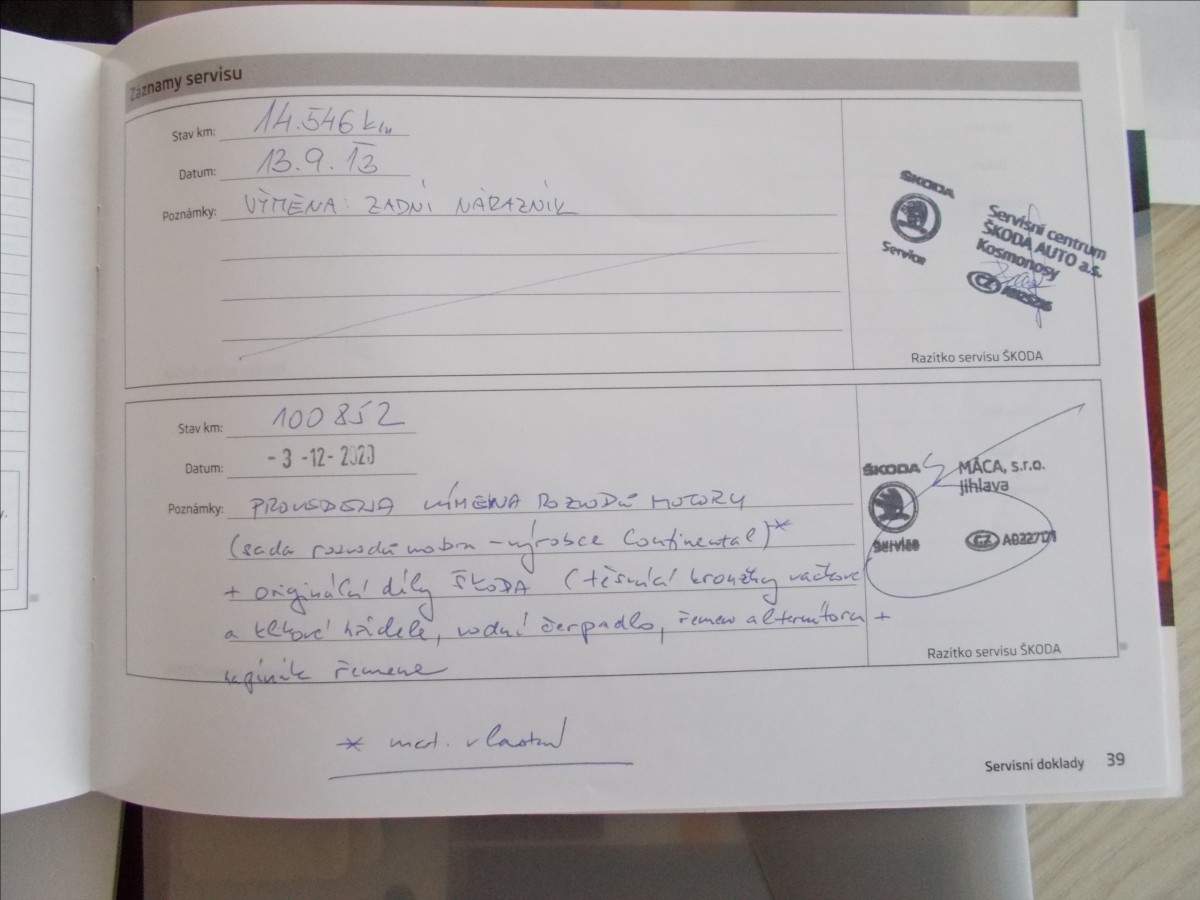 Záznamy servisu
Stav km: 14.546 km
Datum: 13.9.13
Poznámky: VÝMĚNA: ZADNÍ NÁRAZNÍK
ŠKODA
Service
Servisní centrum
ŠKODA AUTO a.s.
Kosmonosy
CZ
Razítko servisu ŠKODA
Stav km: 100852
Datum: -3 -12- 2020
Poznámky: PROVEDENA VÝMĚNA ROZVODŮ MOTORU
(sada rozvodů motoru - výrobce Continental)*
+ originální díly ŠKODA (těsnící kroužky vačkové
a klikové hřídele, vodní čerpadlo, řemen alternátoru +
napínák řemene
ŠKODA
Service
MÁCA, s.r.o.
Jihlava
CZ
Razítko servisu ŠKODA
* mat. vlastní
Servisní doklady 39